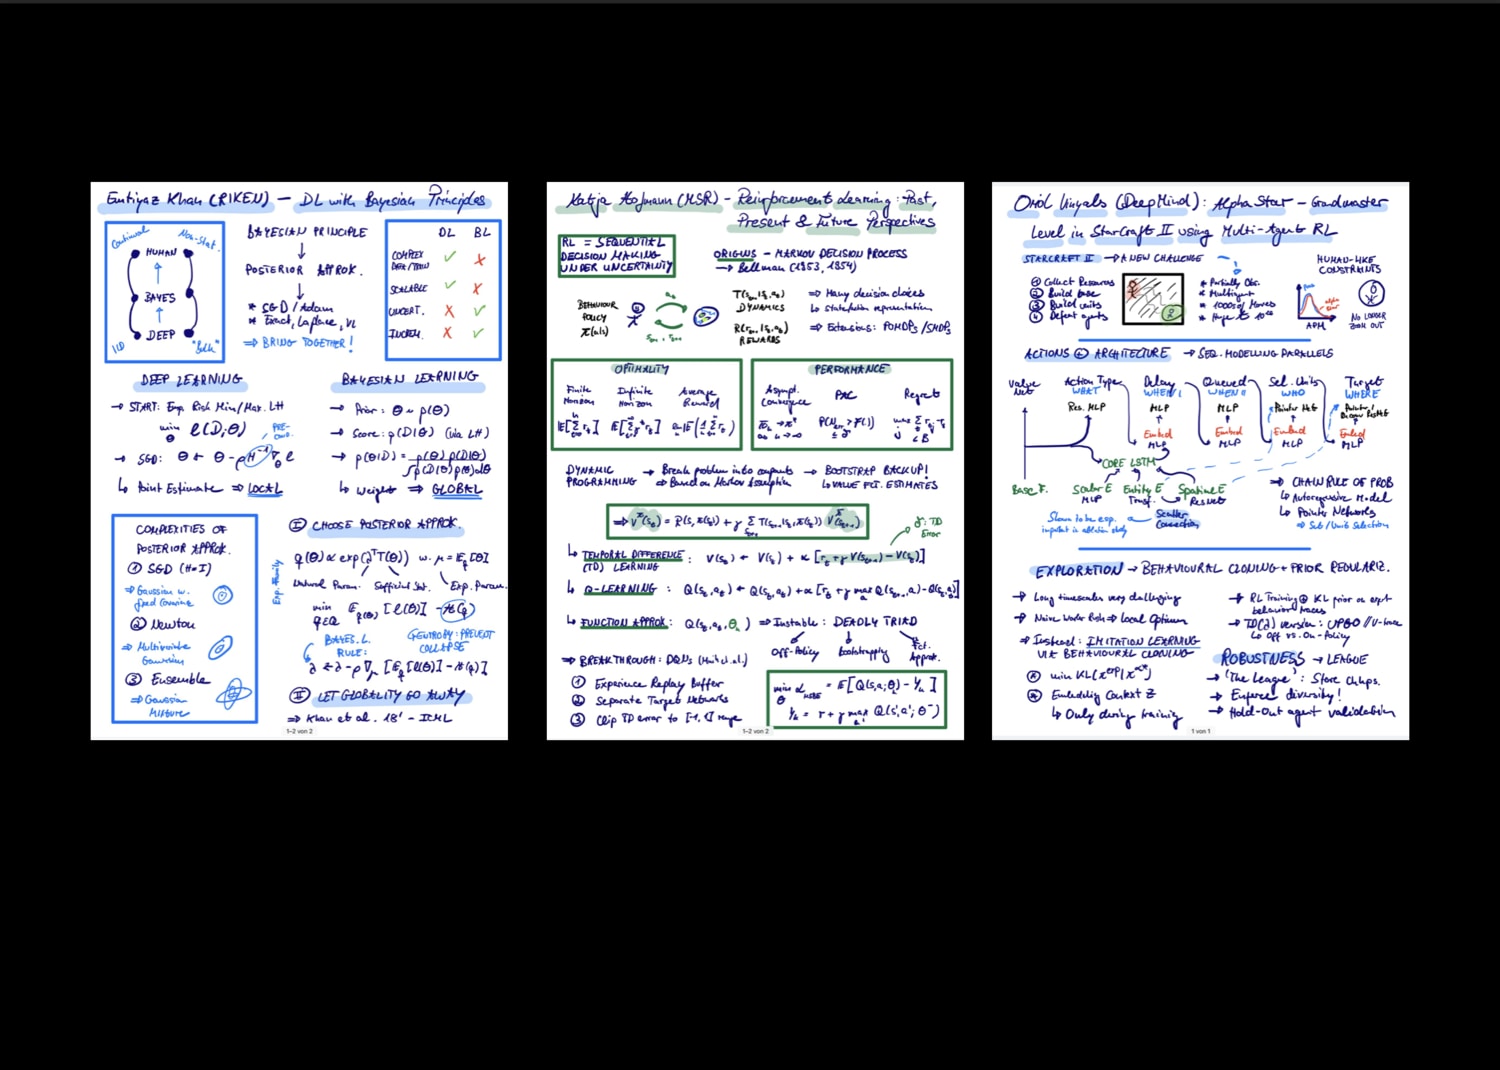 Emtiyaz Khan (RIKEN) — DL with Bayesian Principles
Continual
Non-Stat.
HUMAN
BAYES
DEEP
IID
"Bulk"
BAYESIAN PRINCIPLE
↓
POSTERIOR APPROX.
↓
* SGD / Adam
* Exact, Laplace, VI
⇒ BRING TOGETHER!
DL BL
COMPLEX ✓ ✗
SCALABLE ✓ ✗
UNCERT. ✗ ✓
INCREM. ✗ ✓
DEEP LEARNING
→ START: Emp. Risk Min/Max. LH
min ℓ(D; θ)
θ
→ SGD: θ ← θ - ρ H⁻¹ ∇θ ℓ
↳ Point Estimate ⇒ LOCAL
BAYESIAN LEARNING
→ Prior: θ ~ p(θ)
→ Score: p(D|θ) (via LH)
→ p(θ|D) = p(θ) p(D|θ) / ∫ p(D|θ) p(θ) dθ
↳ Weight ⇒ GLOBAL
COMPLEXITIES OF
POSTERIOR APPROX.
① SGD (H=I)
⇒ Gaussian w.
fixed covariance
② Newton
⇒ Multivariate
Gaussian
③ Ensemble
⇒ Gaussian
Mixture
Exp. Family
Ⅰ CHOOSE POSTERIOR APPROX.
q(θ) ∝ exp(λᵀT(θ)) w. μ = E_q[θ]
Natural Param. Sufficient Stat. Exp. Param.
min E_q(θ)[ℓ(θ)] - H(q)
q∈Q
BAYES. L.
RULE:
ENTROPY: PREVENT
COLLAPSE
λ ← λ - ρ ∇μ [E_q[ℓ(θ)] - H(q)]
Ⅱ LET GLOBALITY GO AWAY
⇒ Khan et al. 18' - ICML
1–2 von 2
Katja Hofmann (MSR) - Reinforcement Learning: Past,
Present & Future Perspectives
RL = SEQUENTIAL
DECISION MAKING
UNDER UNCERTAINTY
ORIGINS – MARKOV DECISION PROCESS
→ Bellman (1953, 1954)
BEHAVIOUR
POLICY
π(a|s)
DYNAMICS
REWARDS
⇒ Many decision choices
↳ State/action representation
⇒ Extensions: POMDPs/SMDPs
OPTIMALITY
Finite
Horizon
Infinite
Horizon
Average
Reward
PERFORMANCE
Asympt.
Convergence
PAC
Regret
DYNAMIC
PROGRAMMING
→ Break problem into
⇒ Based on Markov Assumption
→ BOOTSTRAP BACKUP!
↳ VALUE FCT. ESTIMATES
⇒ V^π(s_t) = R(s, π(s_t)) + γ Σ T(s_t+1|s_t, π(s_t)) V^π(s_t+1)
δ: TD
Error
↳ TEMPORAL DIFFERENCE : V(s_t) ← V(s_t) + α [r_t + γ V(s_t+1) - V(s_t)]
(TD) LEARNING
↳ Q-LEARNING : Q(s_t,a_t) ← Q(s_t,a_t) + α [r_t + γ max Q(s_t+1,a) - Q(s_t,a_t)]
↳ FUNCTION APPROX. : Q(s_t,a_t,θ) ⇒ Instable: DEADLY TRIAD
Off-Policy
bootstrapping
Fct.
Approx.
⇒ BREAKTHROUGH: DQNs (Mnih et al.)
① Experience Replay Buffer
② Separate Target Networks
③ Clip TD error to [-1, 1] range
1–2 von 2
Oriol Vinyals (DeepMind): AlphaStar – Grandmaster
Level in StarCraft II using Multi-Agent RL
STARCRAFT II → A NEW CHALLENGE
① Collect Resources
② Build base
③ Build units
④ Defeat agents
* Partially Obs.
* Multiagent
* 1000s of Moves
HUMAN-LIKE
CONSTRAINTS
APM
NO LONGER
ZOOM OUT
ACTIONS & ARCHITECTURE → SEQ. MODELLING PARALLELS
Value
Net
Action Type
WHAT
Res. MLP
Delay
WHEN I
MLP
Embed
MLP
Queued
WHEN II
MLP
Embed
MLP
Sel. Units
WHO
Pointer Net
Embed
MLP
Target
WHERE
Embed
MLP
CORE LSTM
Base F.
Scalar E
MLP
Entity E
Transf.
Spatial E
ResNet
Shown to be exp.
important in ablation study
Scatter
Connection
⇒ CHAIN RULE OF PROB
↳ Autoregressive Model
↳ Pointer Networks
⇒ Sub/Unit Selection
EXPLORATION → BEHAVIOURAL CLONING + PRIOR REGULARIZ.
→ Long timescales very challenging
→ Naive
⇒ Local Optimum
⇒ Instead: IMITATION LEARNING
VIA BEHAVIOURAL CLONING
Embedding Context Z
↳ Only during training
→ RL Training ⊕ KL prior on expt
behavior traces
→ TD(λ) version: UPGO // V-trace
↳ Off vs. On-Policy
ROBUSTNESS → LEAGUE
→ 'The League': Store Chkps.
→ Enforce diversity!
→ Hold-Out agent validation
1 von 1